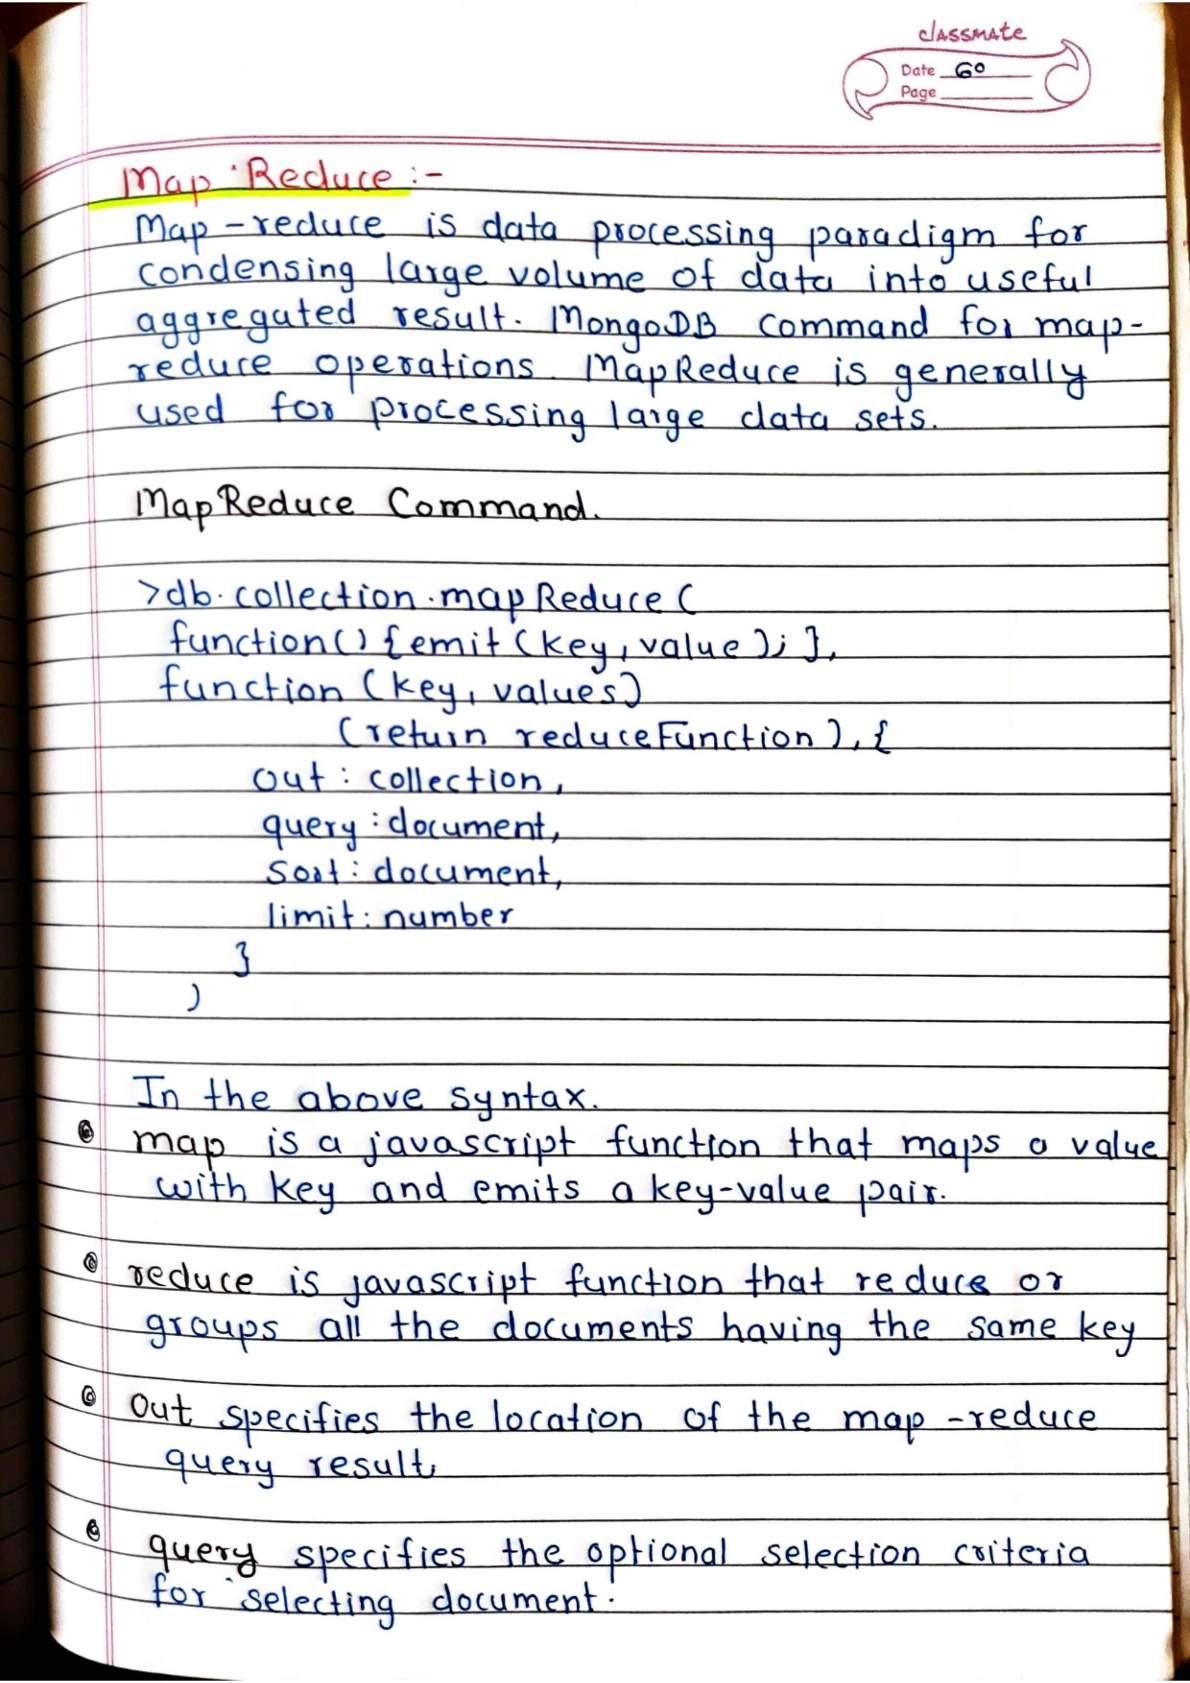 classmate
Date 60
Page
Map Reduce :-
Map-reduce is data processing paradigm for
condensing large volume of data into useful
aggregated result. MongoDB command for map-
reduce operations. MapReduce is generally
used for processing large data sets.
MapReduce Command.
>db.collection.mapReduce(
function() {emit(key, value); },
function (key, values)
(return reduceFunction), {
out : collection,
query : document,
Sort : document,
limit : number
}
)
In the above syntax.
map is a javascript function that maps a value
with key and emits a key-value pair.
reduce is javascript function that reduce or
groups all the documents having the same key
Out specifies the location of the map-reduce
query result,
query specifies the optional selection criteria
for selecting document.